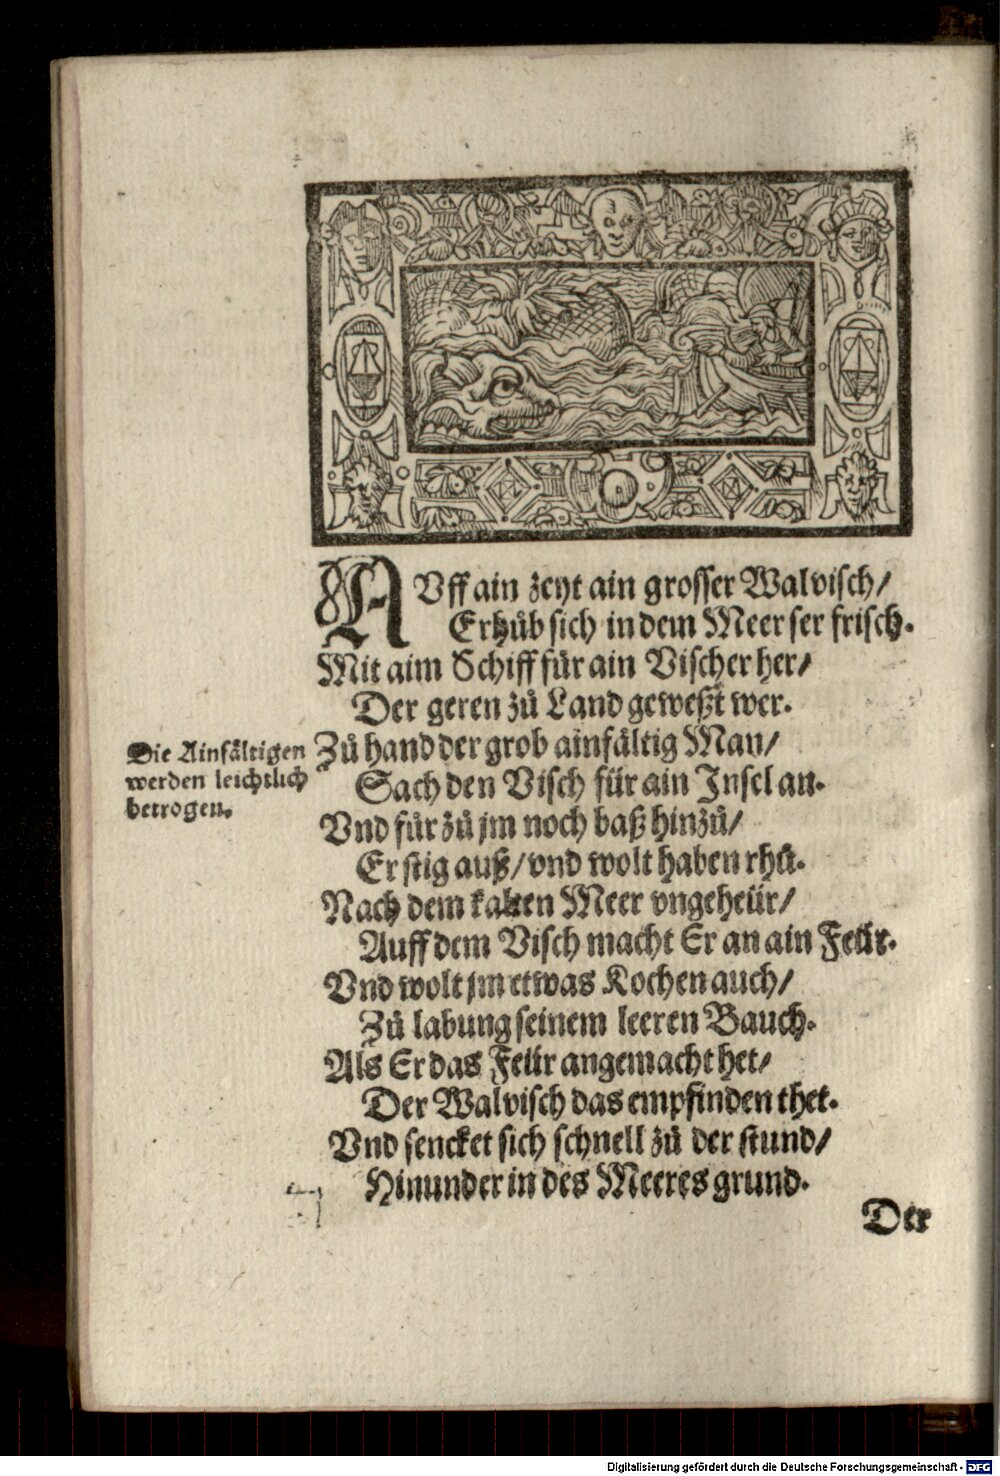 AUff ain zeyt ain grosser Walvisch/
Erhůb sich in dem Meer ser frisch.
Mit aim Schiff für ain Vischer her/
Der geren zů Land geweßt wer.
Die Ainfältigen
werden leichtlich
betrogen.
Zů hand der grob ainfältig Man/
Sach den Visch für ain Insel an.
Vnd für zů jm noch baß hinzů/
Er stig auß/ vnd wolt haben rhů.
Nach dem kalten Meer vngeheür/
Auff dem Visch macht Er an ain Feür.
Vnd wolt jm etwas Kochen auch/
Zů labung seinem leeren Bauch.
Als Er das Feür angemacht het/
Der Walvisch das empfinden thet.
Vnd sencket sich schnell zů der stund/
Hinunder in des Meeres grund.
Der
Digitalisierung gefördert durch die Deutsche Forschungsgemeinschaft - DFG